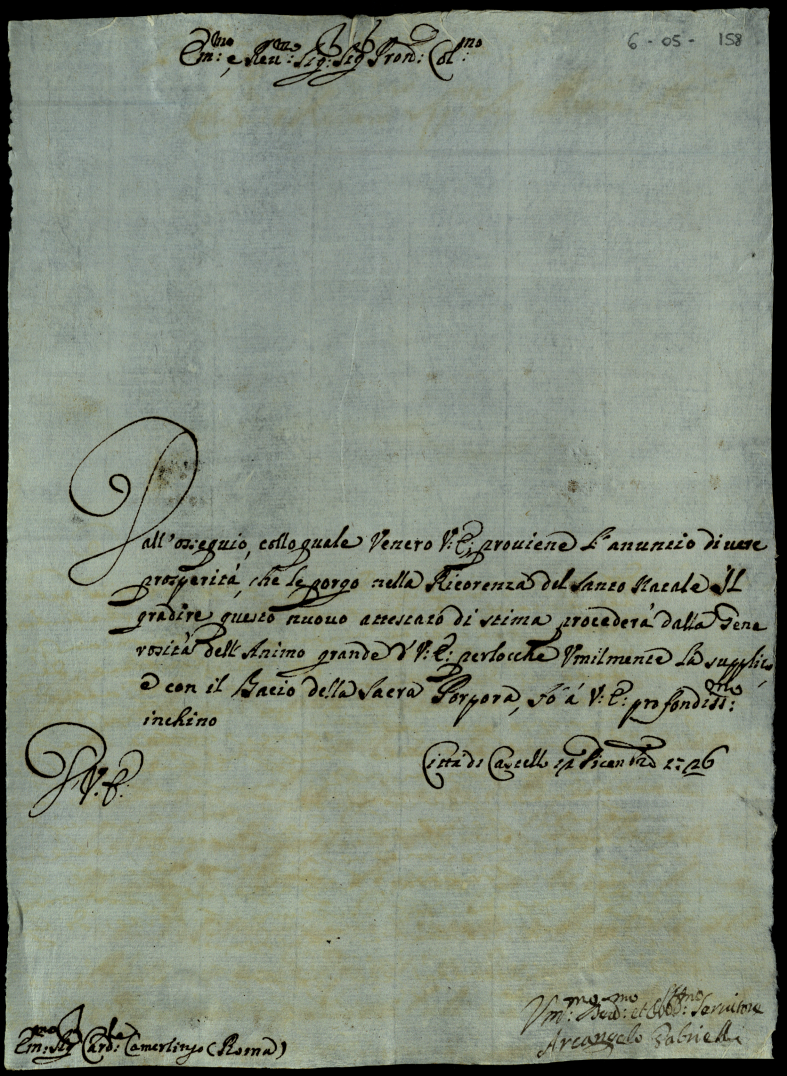 6-05-158
Em:mo e Reu:mo Sig: Sig Pron: Col:mo
Dall'ossequio, collo quale Venero V:E: prouiene L'anuncio di uere
prosperità, che le porgo nella Ricorenza del Santo Natale IL
gradire questo nuouo attestato di stima procederà dalla Gene
rosità dell'Animo grande d'V:E: perlocche Vmilmente La supplico,
e con il Bacio della Sacra Porpora, fò à V:E: profondiss:mo
inchino
Città di Castello Xbre 1726
D V:E:
Vm:mo Deu:mo et Obb:mo Seruitore
Arcangelo Gabrielli
Em:mo Sig Card:le Camerlingo (Roma)